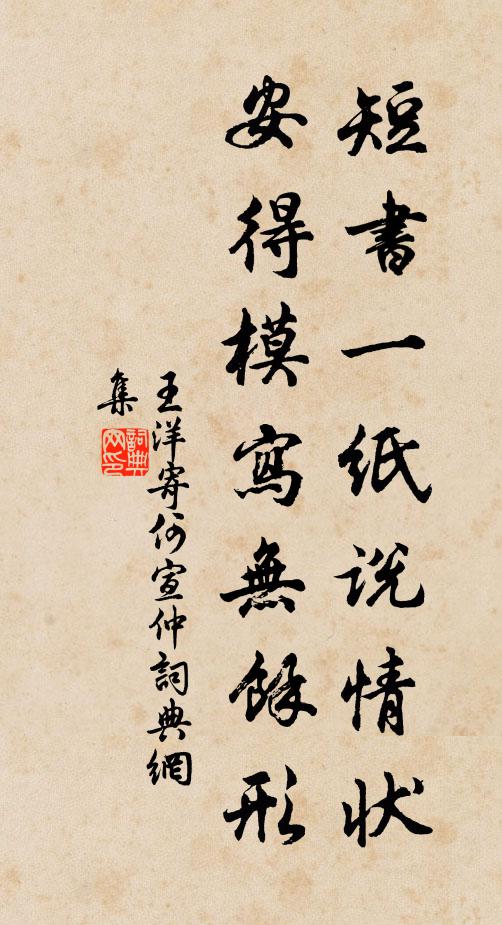 短書一紙说情状
安得模寫無餘形
王洋寄何宣仲詞典網
集
詞典
网印